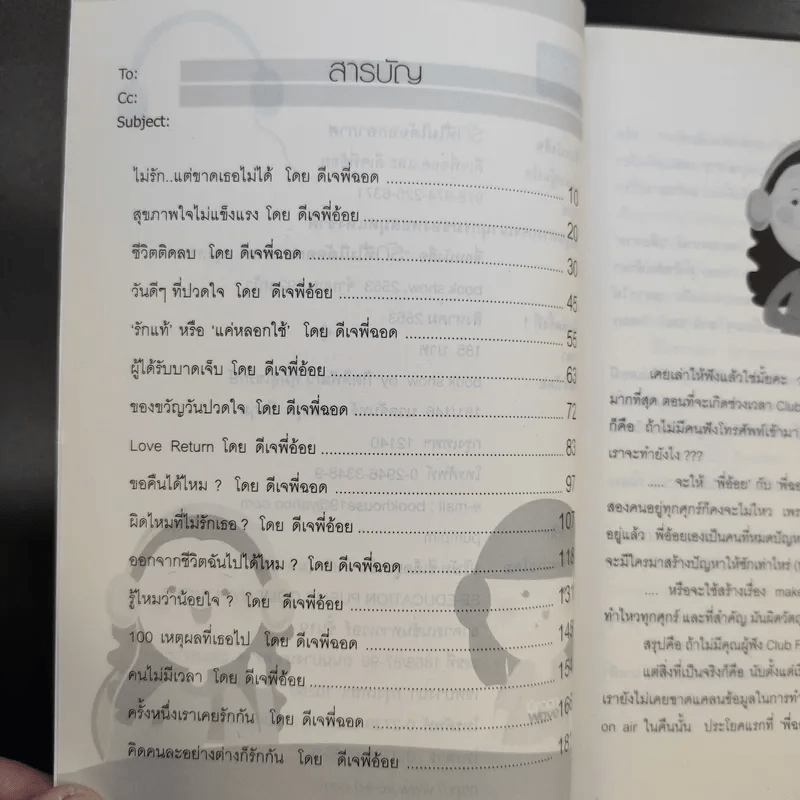 To:
Cc:
Subject:
สารบัญ
ไม่รัก..แต่ขาดเธอไม่ได้ โดย ดีเจพี่ฉอด 10
สุขภาพใจไม่แข็งแรง โดย ดีเจพี่อ้อย 20
ชีวิตติดลบ โดย ดีเจพี่ฉอด 30
วันดีๆ ที่ปวดใจ โดย ดีเจพี่อ้อย 45
'รักแท้' หรือ 'แค่หลอกใช้' โดย ดีเจพี่ฉอด 55
ผู้ได้รับบาดเจ็บ โดย ดีเจพี่อ้อย 63
ของขวัญวันปวดใจ โดย ดีเจพี่ฉอด 72
Love Return โดย ดีเจพี่อ้อย 83
ขอคืนได้ไหม ? โดย ดีเจพี่ฉอด 97
ผิดไหมที่ไม่รักเธอ ? โดย ดีเจพี่อ้อย 107
ออกจากชีวิตฉันไปได้ไหม ? โดย ดีเจพี่ฉอด 118
รู้ไหมว่าน้อยใจ ? โดย ดีเจพี่อ้อย 131
100 เหตุผลที่เธอไป โดย ดีเจพี่ฉอด 145
คนไม่มีเวลา โดย ดีเจพี่อ้อย 154
ครั้งหนึ่งเราเคยรักกัน โดย ดีเจพี่ฉอด
คิดคนละอย่างต่างก็รักกัน โดย ดีเจพี่อ้อย
เคยเล่าให้ฟังแล้วใช่มั้ยคะ
มากที่สุด ตอนที่จะเกิดช่วงเวลา Club
ก็คือ ถ้าไม่มีคนฟังโทรศัพท์เข้ามา
เราจะทำยังไง ???
..... จะให้ 'พี่อ้อย' กับ
สองคนอยู่ทุกศุกร์ก็คงจะไม่ไหว
อยู่แล้ว พี่อ้อยเองเป็นคนที่หมดปัญหา
จะมีใครมาสร้างปัญหาให้ซักเท่าไหร่
.... หรือจะใช้สร้างเรื่อง
ทำไหวทุกศุกร์ และที่สำคัญ
สรุปคือ ถ้าไม่มีคุณผู้ฟัง Club
แต่สิ่งที่เป็นจริงก็คือ
เรายังไม่เคยขาดแคลนข้อมูลในการ
on air ในคืนนั้น ประโยคแรกที่